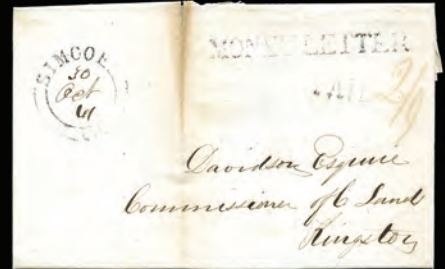 SIMCOE
30
Oct
41
MONEY LETTER
PAID
2/9
Davidson Esquire
Commissioner of C Land
Kingston